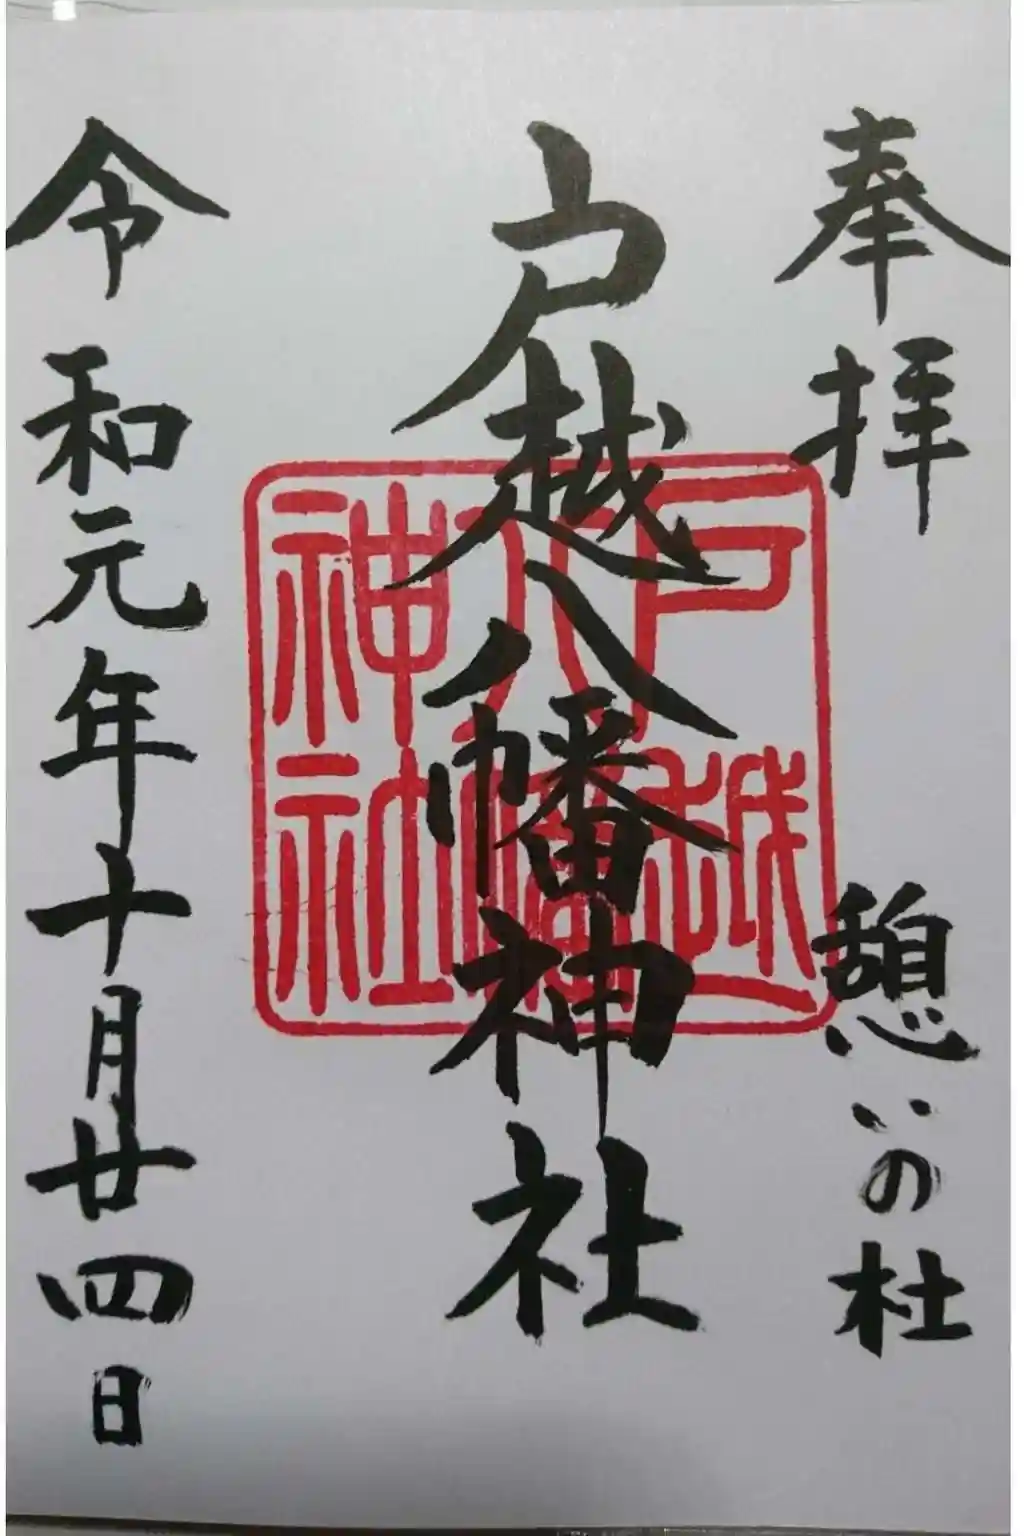 奉拝
憩いの杜
戸越八幡神社
戸越
八幡
神社
令和元年十月廿四日